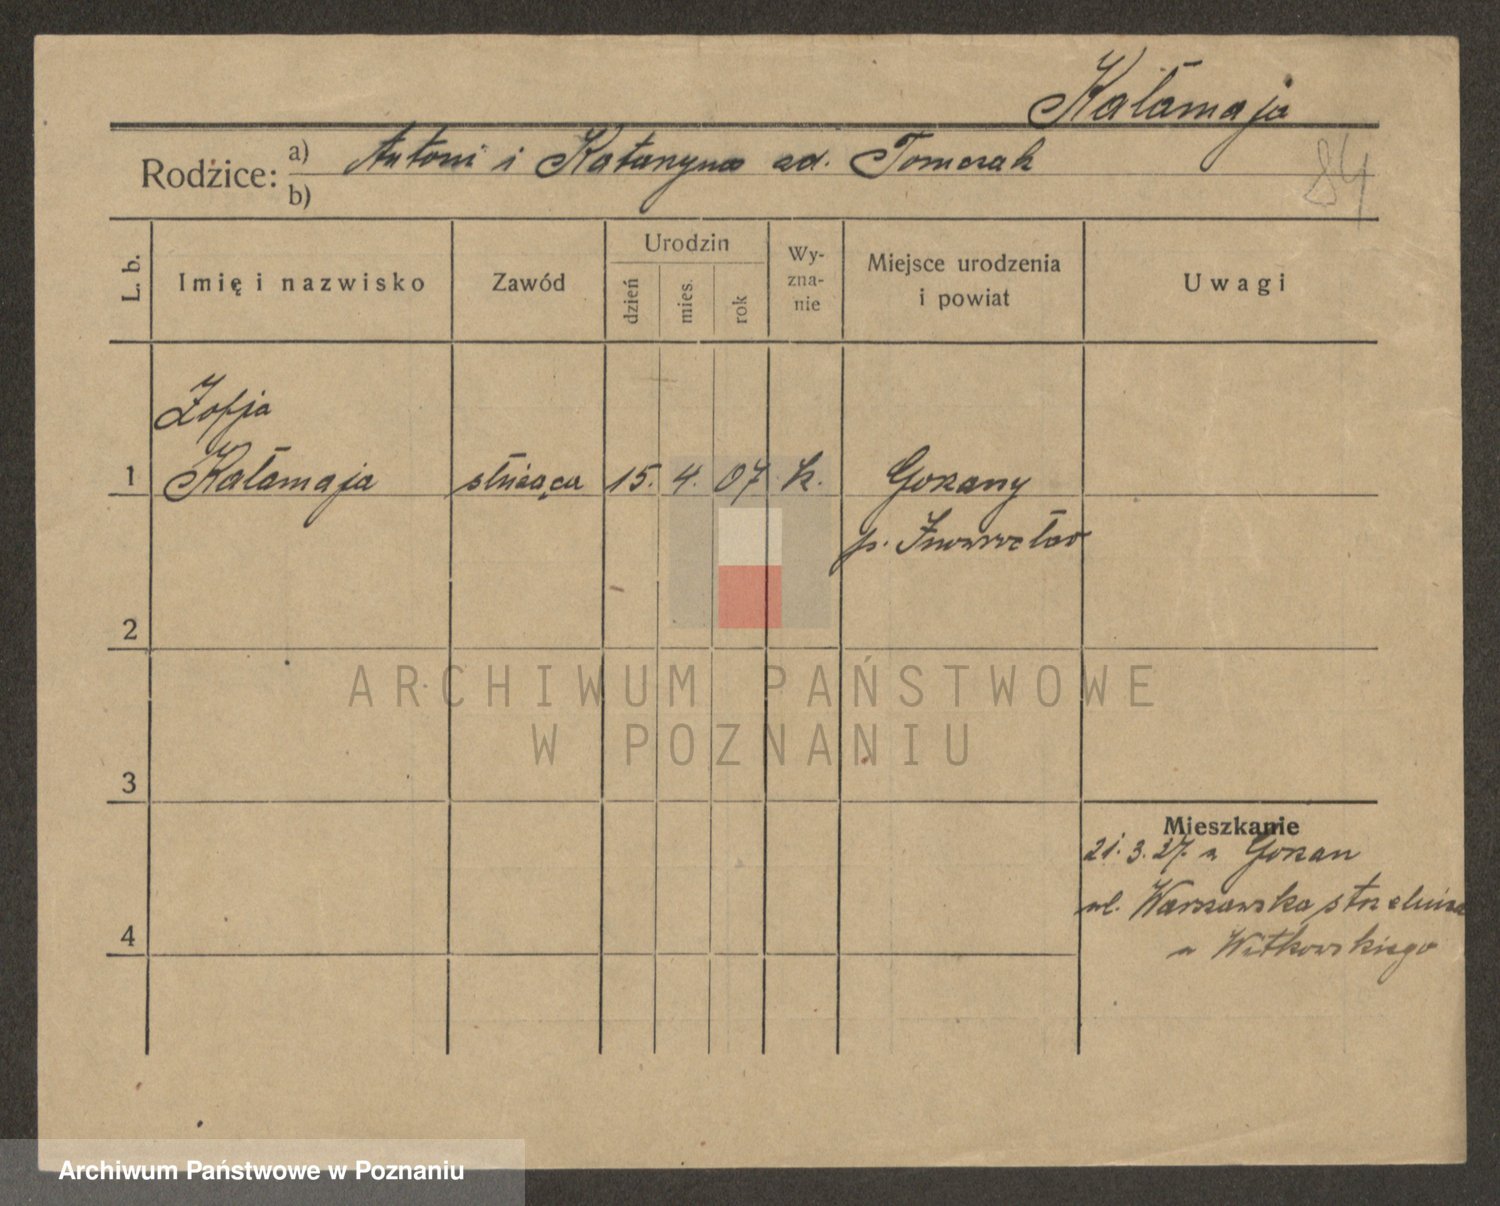 Kałamaja
Rodzice: a) Antoni i Katarzyna zd. Tomczak
b)
84
L. b.
Imię i nazwisko
Zawód
Urodzin
dzień
mies.
rok
Wy-
zna-
nie
Miejsce urodzenia
i powiat
Uwagi
Zofja
1 Kałamaja służąca 15. 4. 07 k. Gozany
p. Inowrocław
2
3
4
Mieszkanie
21. 3. 27. z Gozan
ul. Warszawska strzelnica
u Witkowskiego
ARCHIWUM PAŃSTWOWE
W POZNANIU
Archiwum Państwowe w Poznaniu